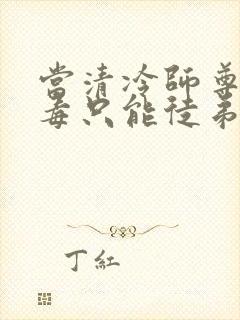 當清冷師尊
毒只能徒弟
丁紅